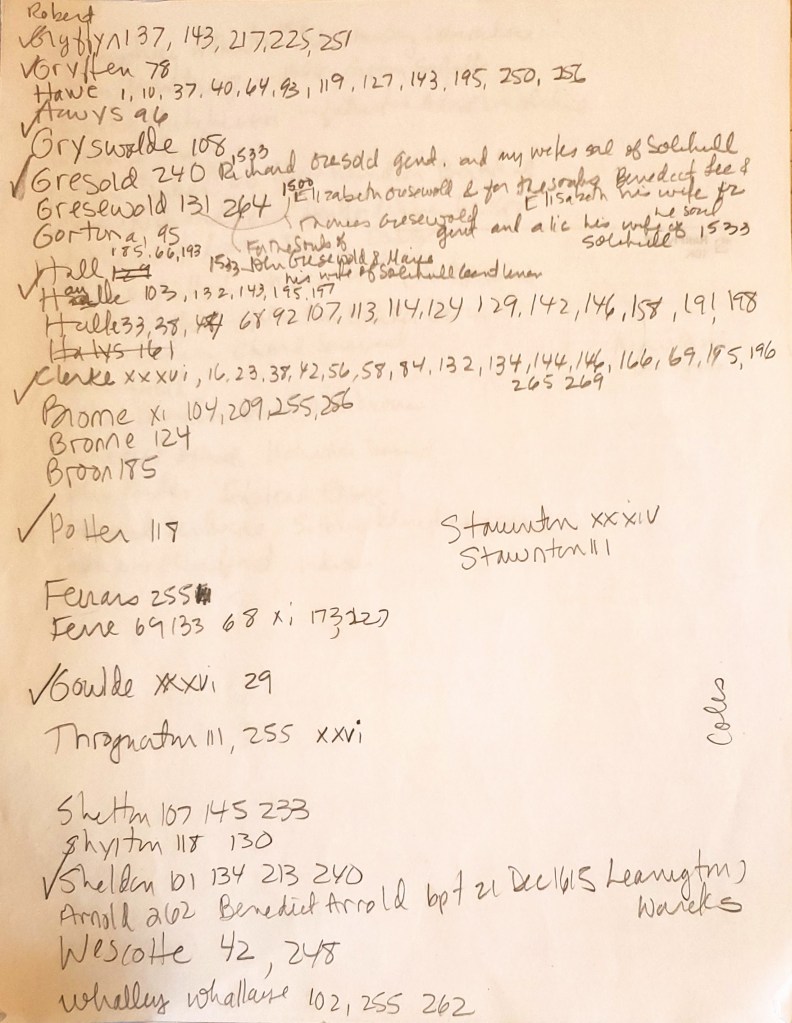 Robert
✓Gryffyn 137, 143, 217, 225, 251
✓Gryffen 78
Hawe 1, 10, 37, 40, 64, 93, 119, 127, 143, 195, 250, 256
✓Hawys 96
Gryswolde 108
✓Gresold 240 1533 Richard Gresold gent. and my wekes sol of Solihull
Gresewold 131 264 1500 Elizabeth Gresewold & for the souls Benedict Lee & Elisabeth his wife for
Thomas Gresewold gent and alic his wife of Solihull 1533
the soul
Gortuna, 95
For the Souls of
1533 John Gresewold & Marye
his wife of Solihull Gentleman
Hall 129 185, 66, 193
✓Haulle 103, 132, 143, 195, 197
Halle 33, 38, 44 68 92 107, 113, 114, 124 129, 142, 146, 158, 191, 198
Halys 161
✓Clerke xxxvi, 16, 23, 38, 42, 56, 58, 84, 132, 134, 144, 146, 166, 69, 195, 196
265 269
Brome xi 104, 209, 255, 256
Brome 124
Broon 185
✓Potter 118
Staunton xxxiv
Stawnton 111
Ferrars 255
Ferre 69 133 68 xi 173, 227
✓Goulde xxxvi 29
Coles
Throgmatm 111, 255 xxvi
Sheltm 107 145 233
Shyltm 118 130
✓Sheldon 101 134 213 240
Arnold 262 Benedict Arnold bpt 21 Dec 1615 Leamington,
Warcks
Wescotte 42, 248
Whalley Whallaise 102, 255 262